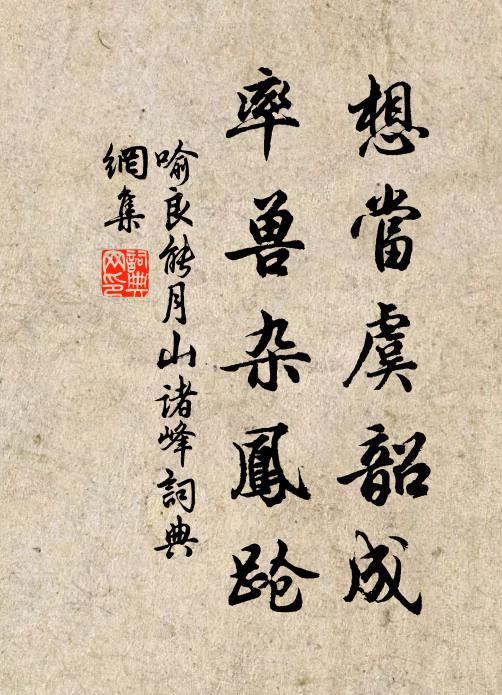 想當虞韶成
率兽杂鳳跄
喻良能月山诸峰詞典
網集
詞典
网印